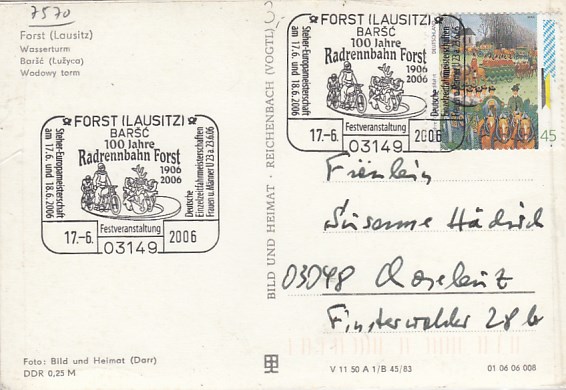 7570
Forst (Lausitz)
Wasserturm
Baršć (Łužyca)
Wodowy torm
FORST (LAUSITZ)
BARŠĆ
100 Jahre
Radrennbahn Forst
1906
2006
Steher-Europameisterschaft
am 17.6. und 18.6.2006
Deutsche
Einzelzeitfahrmeisterschaften
Frauen u. Männer U 23 a. 23.6.06
17.-6.
Festveranstaltung
2006
03149
FORST (LAUSITZ)
BARŠĆ
100 Jahre
Radrennbahn Forst
1906
2006
Steher-Europameisterschaft
am 17.6. und 18.6.2006
Deutsche
Einzelzeitfahrmeisterschaften
Frauen u. Männer U 23 a. 23.6.06
17.-6.
Festveranstaltung
2006
03149
DEUTSCHLAND
45
BILD UND HEIMAT · REICHENBACH (VOGTL)
Fräulein
Susanne Hädrich
03048
Finsterwalder 28 b
Foto: Bild und Heimat (Darr)
DDR 0,25 M
V 11 50 A 1/B 45/83
01 06 06 008